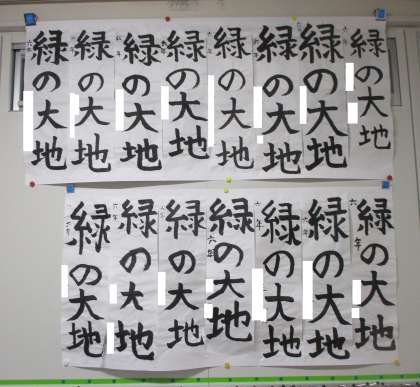 緑の大地
緑の大地
緑の大地
緑の大地
緑の大地
緑の大地
緑の大地
緑の大地
緑の大地
六年
緑の大地
六年
緑の大地
六年
緑の大地
六年
緑の大地
緑の大地
六年
緑の大地
六年